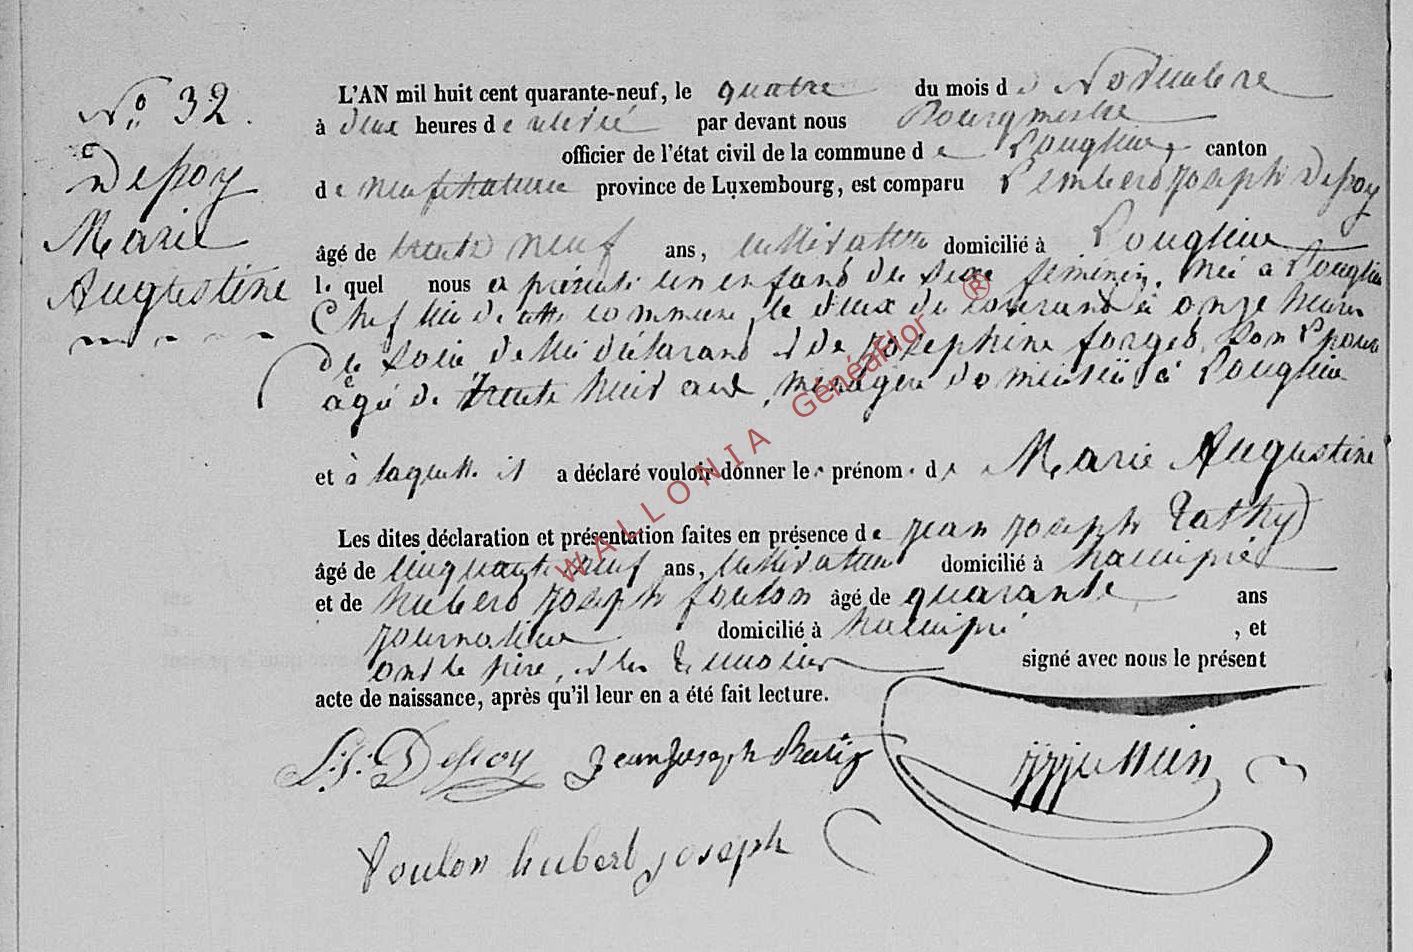 N.° 32.
Dessoy
Marie
Augustine
L'AN mil huit cent quarante-neuf, le quatre du mois de Novembre
à deux heures de relevée par devant nous Bourgmestre
officier de l'état civil de la commune de Longlier, canton
de neufchateau province de Luxembourg, est comparu Lambert Joseph Dessoy
âgé de trente neuf ans, cultivateur domicilié à Longlier
le quel nous a présenté un enfant du sexe féminin, née à Longlier
Chef lieu de cette commune, le deux du courant à onze heures
du soir, de lui déclarant et de Joséphine forget, son Epouse
âgée de trente huit ans, ménagère domiciliée à Longlier
et à laquelle il a déclaré vouloir donner les prénoms de Marie Augustine
Les dites déclaration et présentation faites en présence de Jean Joseph
âgé de cinquante neuf ans, cultivateur domicilié à hamipré
et de hubert Joseph foulon âgé de quarante ans
Journalier domicilié à hamipré, et
ont le père, et les témoins signé avec nous le présent
acte de naissance, après qu'il leur en a été fait lecture.
L. J. Dessoy Jean Joseph
foulon hubert joseph
WALLONIA GénéaFlor ®